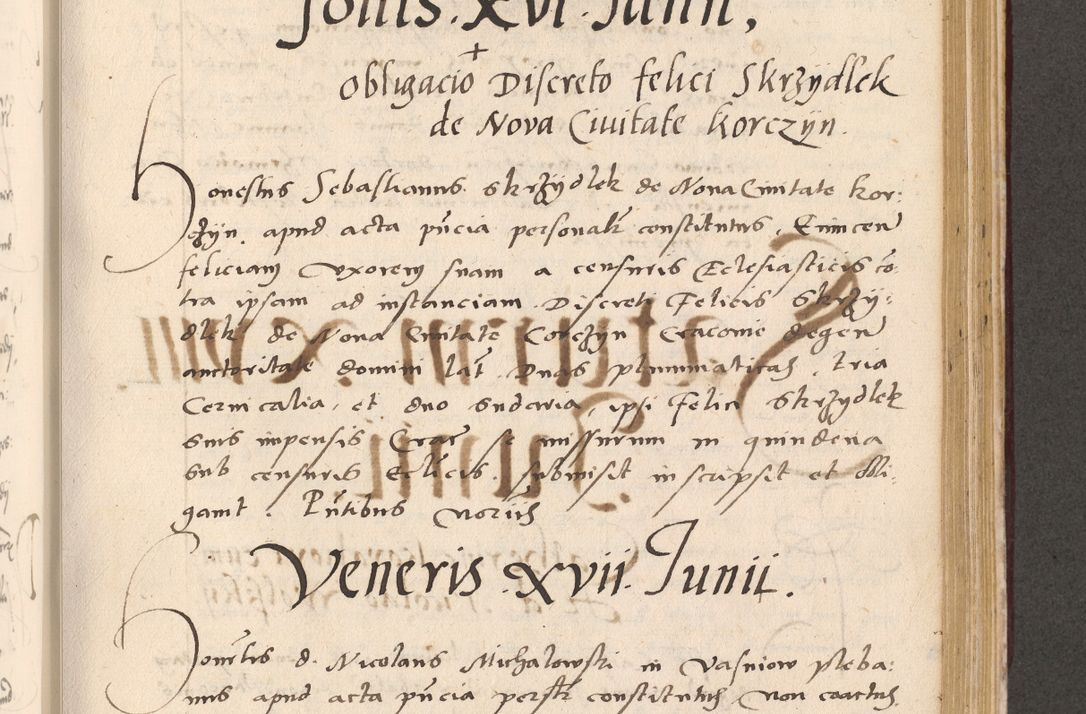 Jouis. Xvi. Junii,
+
Obligacio Discreto felici Skrzydlek
de Nova Ciuitate Korczyn.
Honestus Sebastianus Skrzydlek de Noua Ciuitate Kor:
czyn. apud acta pñcia personalr constitutus, Eiuicen
feliciam vxorem suam a censuris Eclesiasticis cõ
tra ipsam ad instanciam Discreti Felicis Skrzy:
dlek de Noua Ciuitate Corczyn Cracouie degen
auctoritate domini lat. Duas plummaticas, tria
Ceruicalia, et duo sudaria, ipsi Felici Skrzydlek
suis impensis Crac se missurum in quindena
sub censuris Eclicis. submisit inscripsit et obli:
gauit. Pñtibus
Veneris .xvii. Junii.
d. Nicolaus Michalowski in Vasniow pleba:
nus apud acta pñcia perslr constitutus, non coactus